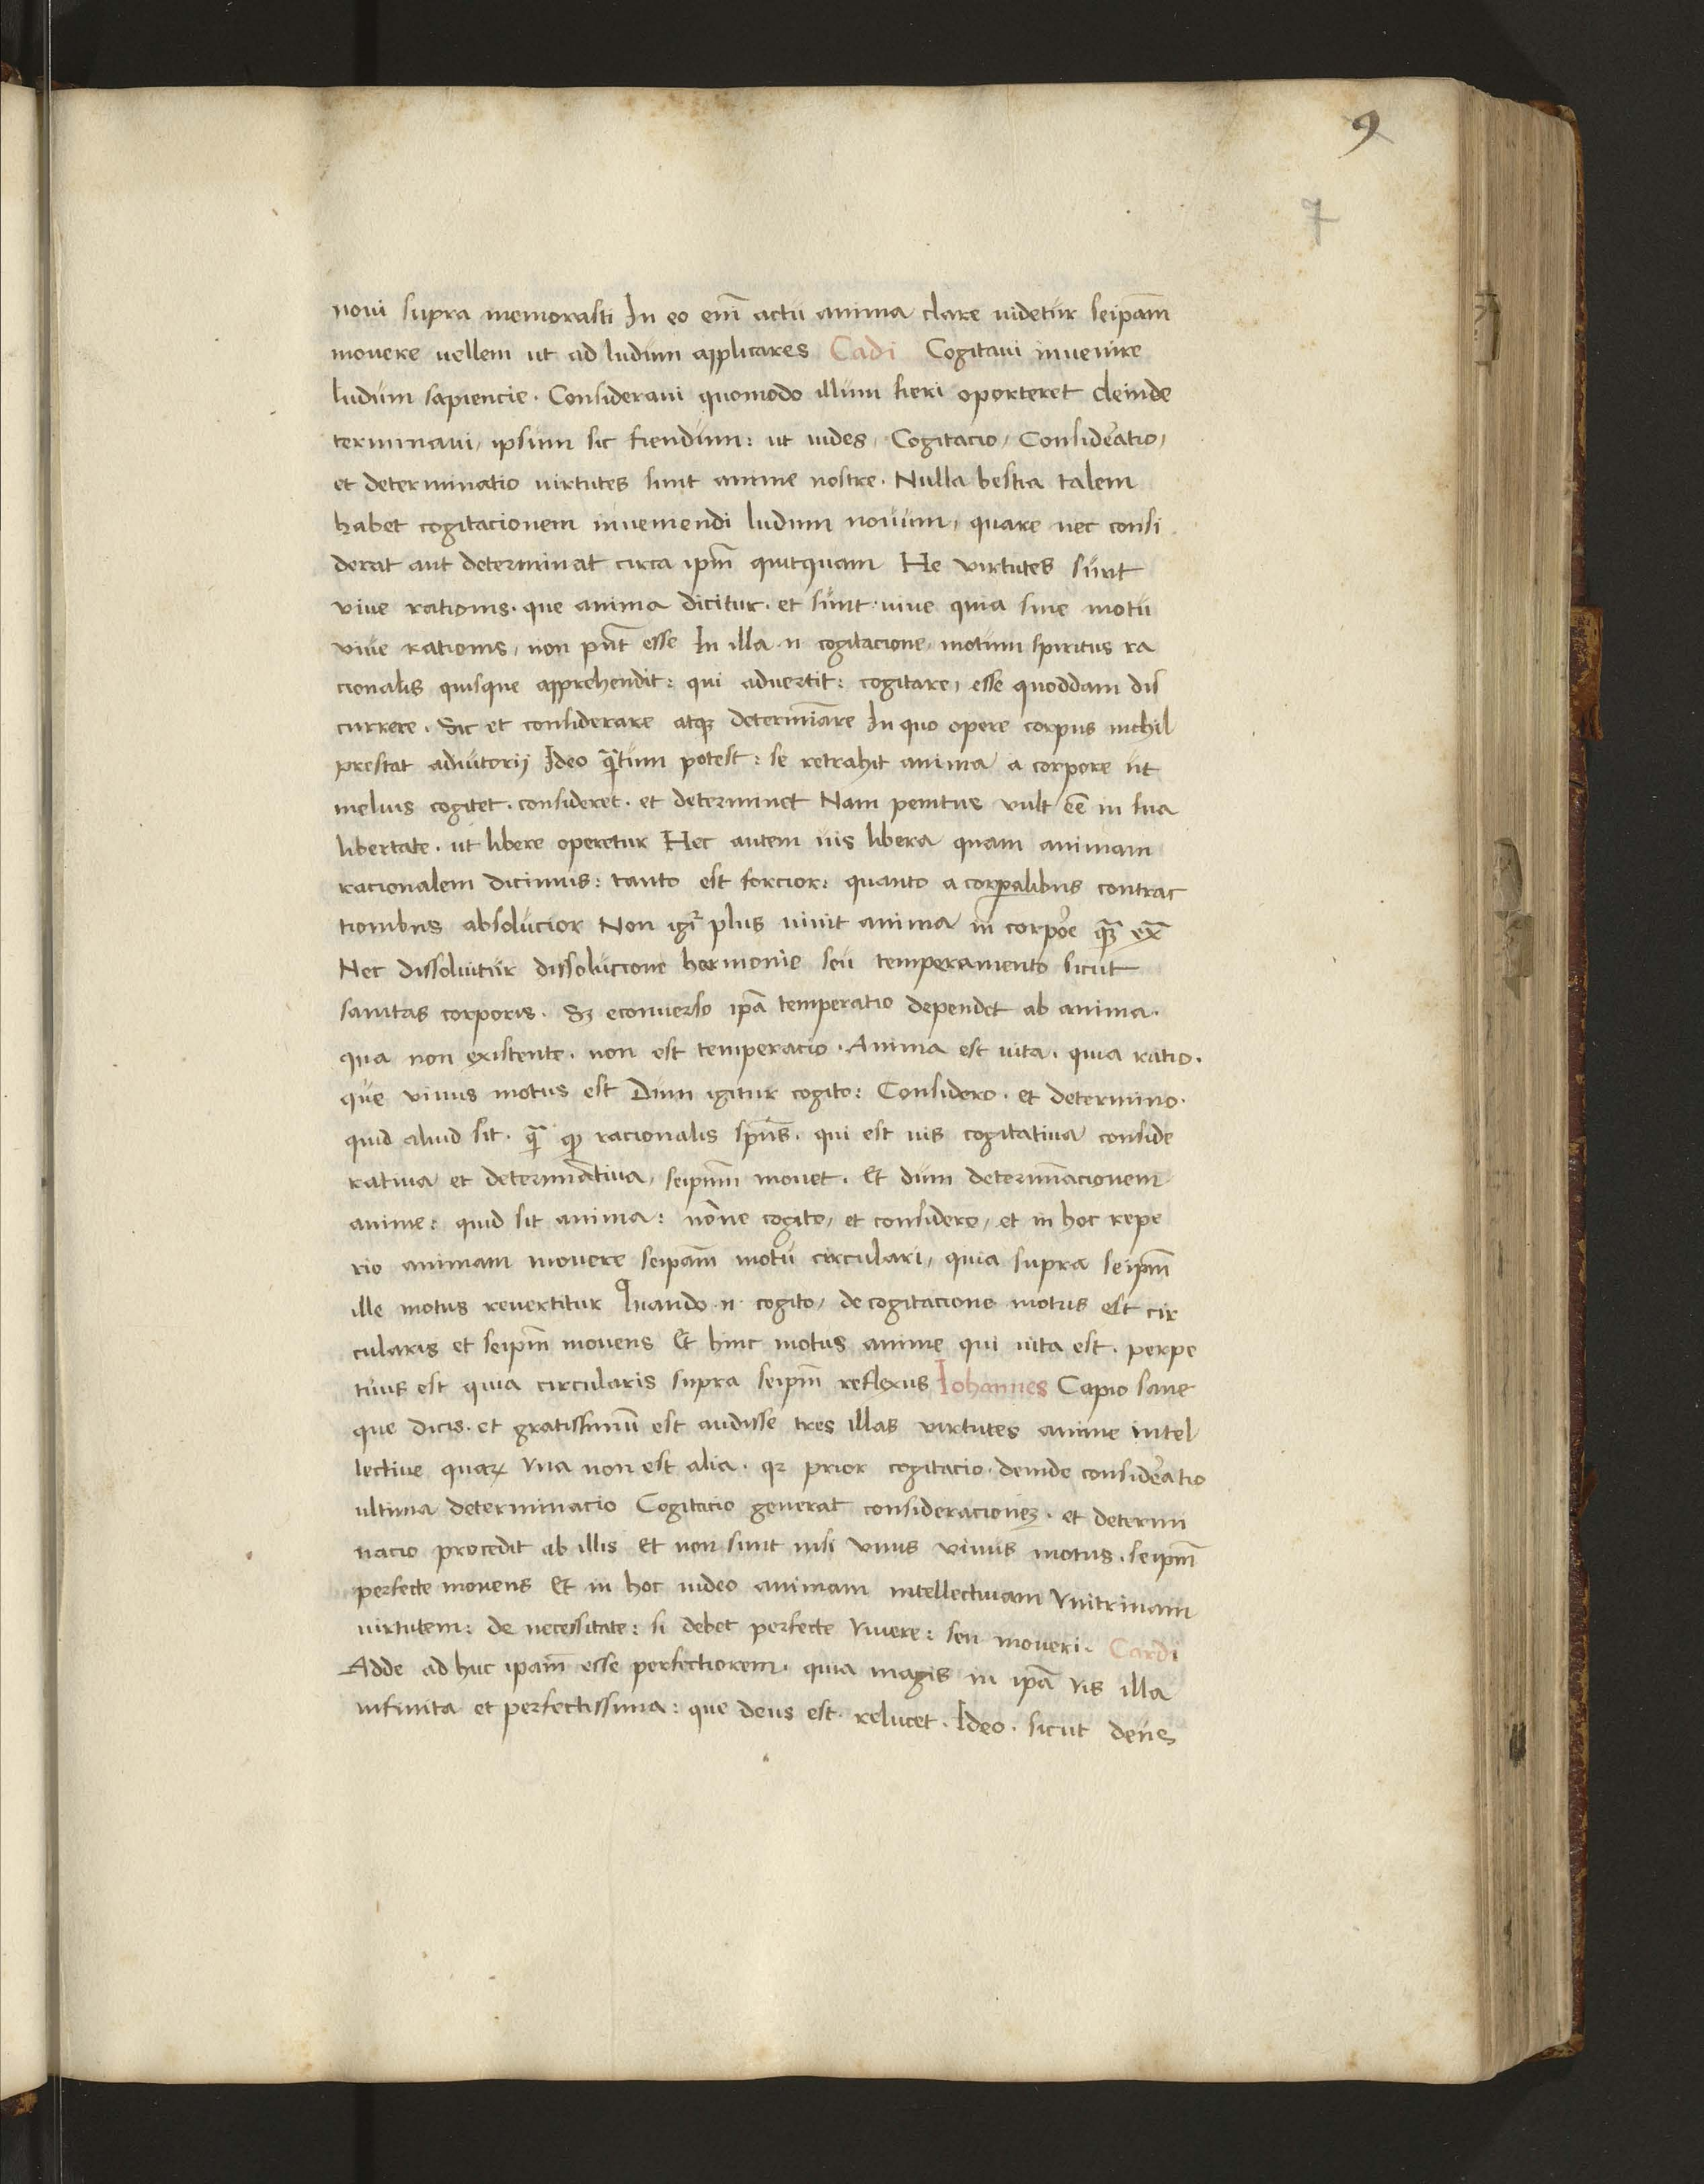 9
7
noui supra memorasti In eo em̄ actu anima clare uidetur seipam̄
mouere uellem ut ad ludum applicares Cadi Cogitaui inuenire
ludum sapiencie . Consideraui quomodo illum fieri oporteret deinde
terminaui, ipsum sic fiendum: ut uides, Cogitacio, Considẽatio,
et determinatio uirtutes sunt anime nostre . Nulla bestia talem
habet cogitacionem inueniendi ludum nouum, quare nec consi
derat aut determinat circa ipm̄ quitquam He virtutes sunt
viue rationis . que anima dicitur . et sunt . uiue quia sine motu
viue rationis, non pn̄t esse In illa .n. cogitacione, motum spiritus ra
cionalis quisque apprehendit: qui aduertit: cogitare, esse quoddam dis
currere . Sic et considerare atqꝫ determīare In quo opere corpus nichil
prestat adiutorij Ideo qͣ̄tum potest: se retrahit anima a corpore ut
melius cogitet . consideret . et determinet Nam penitus vult ēē in sua
libertate . ut libere operetur Hec autem uis libera quam animam
racionalem dicimus: tanto est forcior: quanto a corꝑalibus contrac
tionibus absolucior Non igr̄ plus uiuit anima in corpoe qꝫ̄ ex̄
Nec dissoluitur dissolucione hermonie seu temperamento sicut
sanitas corporis . Sꝫ econuerso ipā temperatio dependet ab anima .
qua non existente . non est temperacio . Anima est uita . quia ratio .
que viuus motus est Dum igitur cogito: Considero . et determino .
quid aliud sit . qͣ̄ ꝙ racionalis sp̄us . qui est uis cogitatiua conside
ratiua et determīatiua, seipm̄ mouet . Et dum determīacionem
anime: quid sit anima: nōne cogito, et considero, et in hoc repe
rio animam mouere seipam̄ motu circulari, quia supra seipm̄
ille motus reuertitur Quando .n. cogito, de cogitacione motus est cir
cularis et seipm̄ mouens Et hinc motus anime qui uita est . perpe
tuus est quia circularis supra seipm̄ reflexus Iohannes Capio sane
que dicis . et gratissimū est audisse tres illas virtutes anime intel
lectiue quaꝝ vna non est alia . qꝛ prior cogitacio . deinde considẽatio
ultima determinacio Cogitacio generat consideracionēꝫ . et determi
nacio procedit ab illis Et non sunt nisi vnus viuus motus . seipm̄
perfecte mouens Et in hoc uideo animam intellectiuam vnitrinam
uirtutem: de necessitate: si debet perfecte viuere: seu moueri . Cardi
Adde ad huc ipam̄ esse perfectiorem . quia magis in ipā vis illa
infinita et perfectissima: que deus est . relucet . Ideo . sicut deus